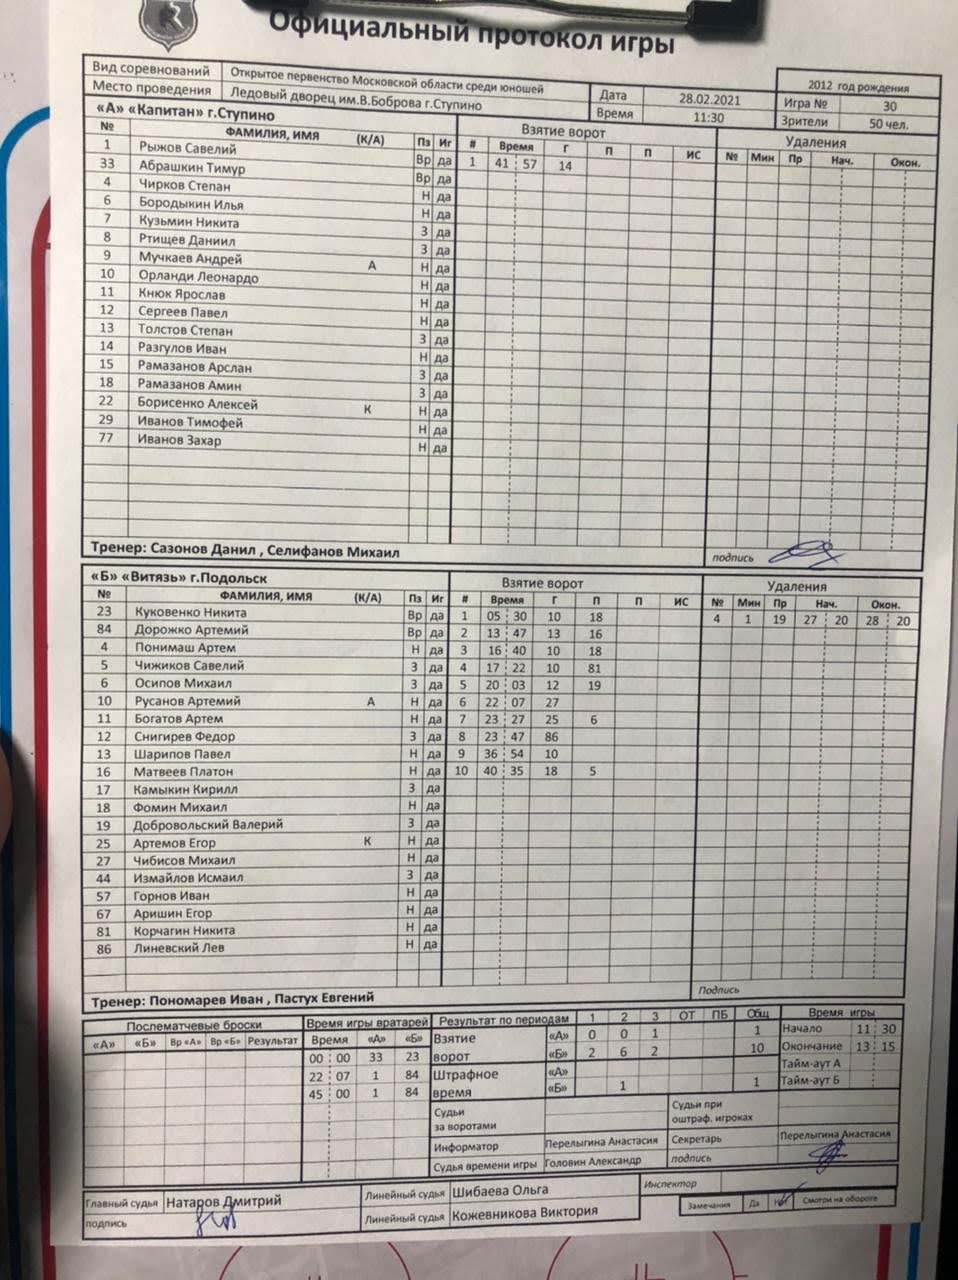 Официальный протокол игры
Вид соревнований Открытое первенство Московской области среди юношей 2012 год рождения
Место проведения Ледовый дворец им.В.Боброва г.Ступино Дата 28.02.2021 Игра № 30
Время 11:30 Зрители 50 чел.
«А» «Капитан» г.Ступино Взятие ворот Удаления
№ ФАМИЛИЯ, ИМЯ (К/А) Пз Иг # Время Г П П ИС № Мин Пр Нач. Окон.
1 Рыжов Савелий Вр да 1 41 57 14
33 Абрашкин Тимур Вр да
4 Чирков Степан Н да
6 Бородыкин Илья Н да
7 Кузьмин Никита З да
8 Ртищев Даниил З да
9 Мучкаев Андрей А Н да
10 Орланди Леонардо Н да
11 Кнюк Ярослав Н да
12 Сергеев Павел Н да
13 Толстов Степан З да
14 Разгулов Иван Н да
15 Рамазанов Арслан З да
18 Рамазанов Амин З да
22 Борисенко Алексей К Н да
29 Иванов Тимофей Н да
77 Иванов Захар Н да
Тренер: Сазонов Данил , Селифанов Михаил подпись
«Б» «Витязь» г.Подольск Взятие ворот Удаления
№ ФАМИЛИЯ, ИМЯ (К/А) Пз Иг # Время Г П П ИС № Мин Пр Нач. Окон.
23 Куковенко Никита Вр да 1 05 30 10 18 4 1 19 27 20 28 20
84 Дорожко Артемий Вр да 2 13 47 13 16
4 Понимаш Артем Н да 3 16 40 10 18
5 Чижиков Савелий З да 4 17 22 10 81
6 Осипов Михаил З да 5 20 03 12 19
10 Русанов Артемий А Н да 6 22 07 27
11 Богатов Артем Н да 7 23 27 25 6
12 Снигирев Федор З да 8 23 47 86
13 Шарипов Павел Н да 9 36 54 10
16 Матвеев Платон Н да 10 40 35 18 5
17 Камыкин Кирилл З да
18 Фомин Михаил Н да
19 Добровольский Валерий З да
25 Артемов Егор К Н да
27 Чибисов Михаил Н да
44 Измайлов Исмаил З да
57 Горнов Иван Н да
67 Аришин Егор Н да
81 Корчагин Никита Н да
86 Линевский Лев Н да
Тренер: Пономарев Иван , Пастух Евгений Подпись
Послематчевые броски Время игры вратарей Результат по периодам 1 2 3 ОТ ПБ Общ Время игры
«А» «Б» Вр «А» Вр «Б» Результат Время «А» «Б» Взятие ворот «А» 0 0 1 1 Начало 11 30
00 : 00 33 23 «Б» 2 6 2 10 Окончание 13 15
22 : 07 1 84 Штрафное время «А» Тайм-аут А
45 : 00 1 84 «Б» 1 1 Тайм-аут Б
Судьи за воротами Судьи при оштраф. игроках
Информатор Перелыгина Анастасия Секретарь Перелыгина Анастасия
Судья времени игры Головин Александр подпись
Главный судья Натаров Дмитрий Линейный судья Шибаева Ольга Инспектор
подпись Линейный судья Кожевникова Виктория Замечания Да Нет Смотри на обороте